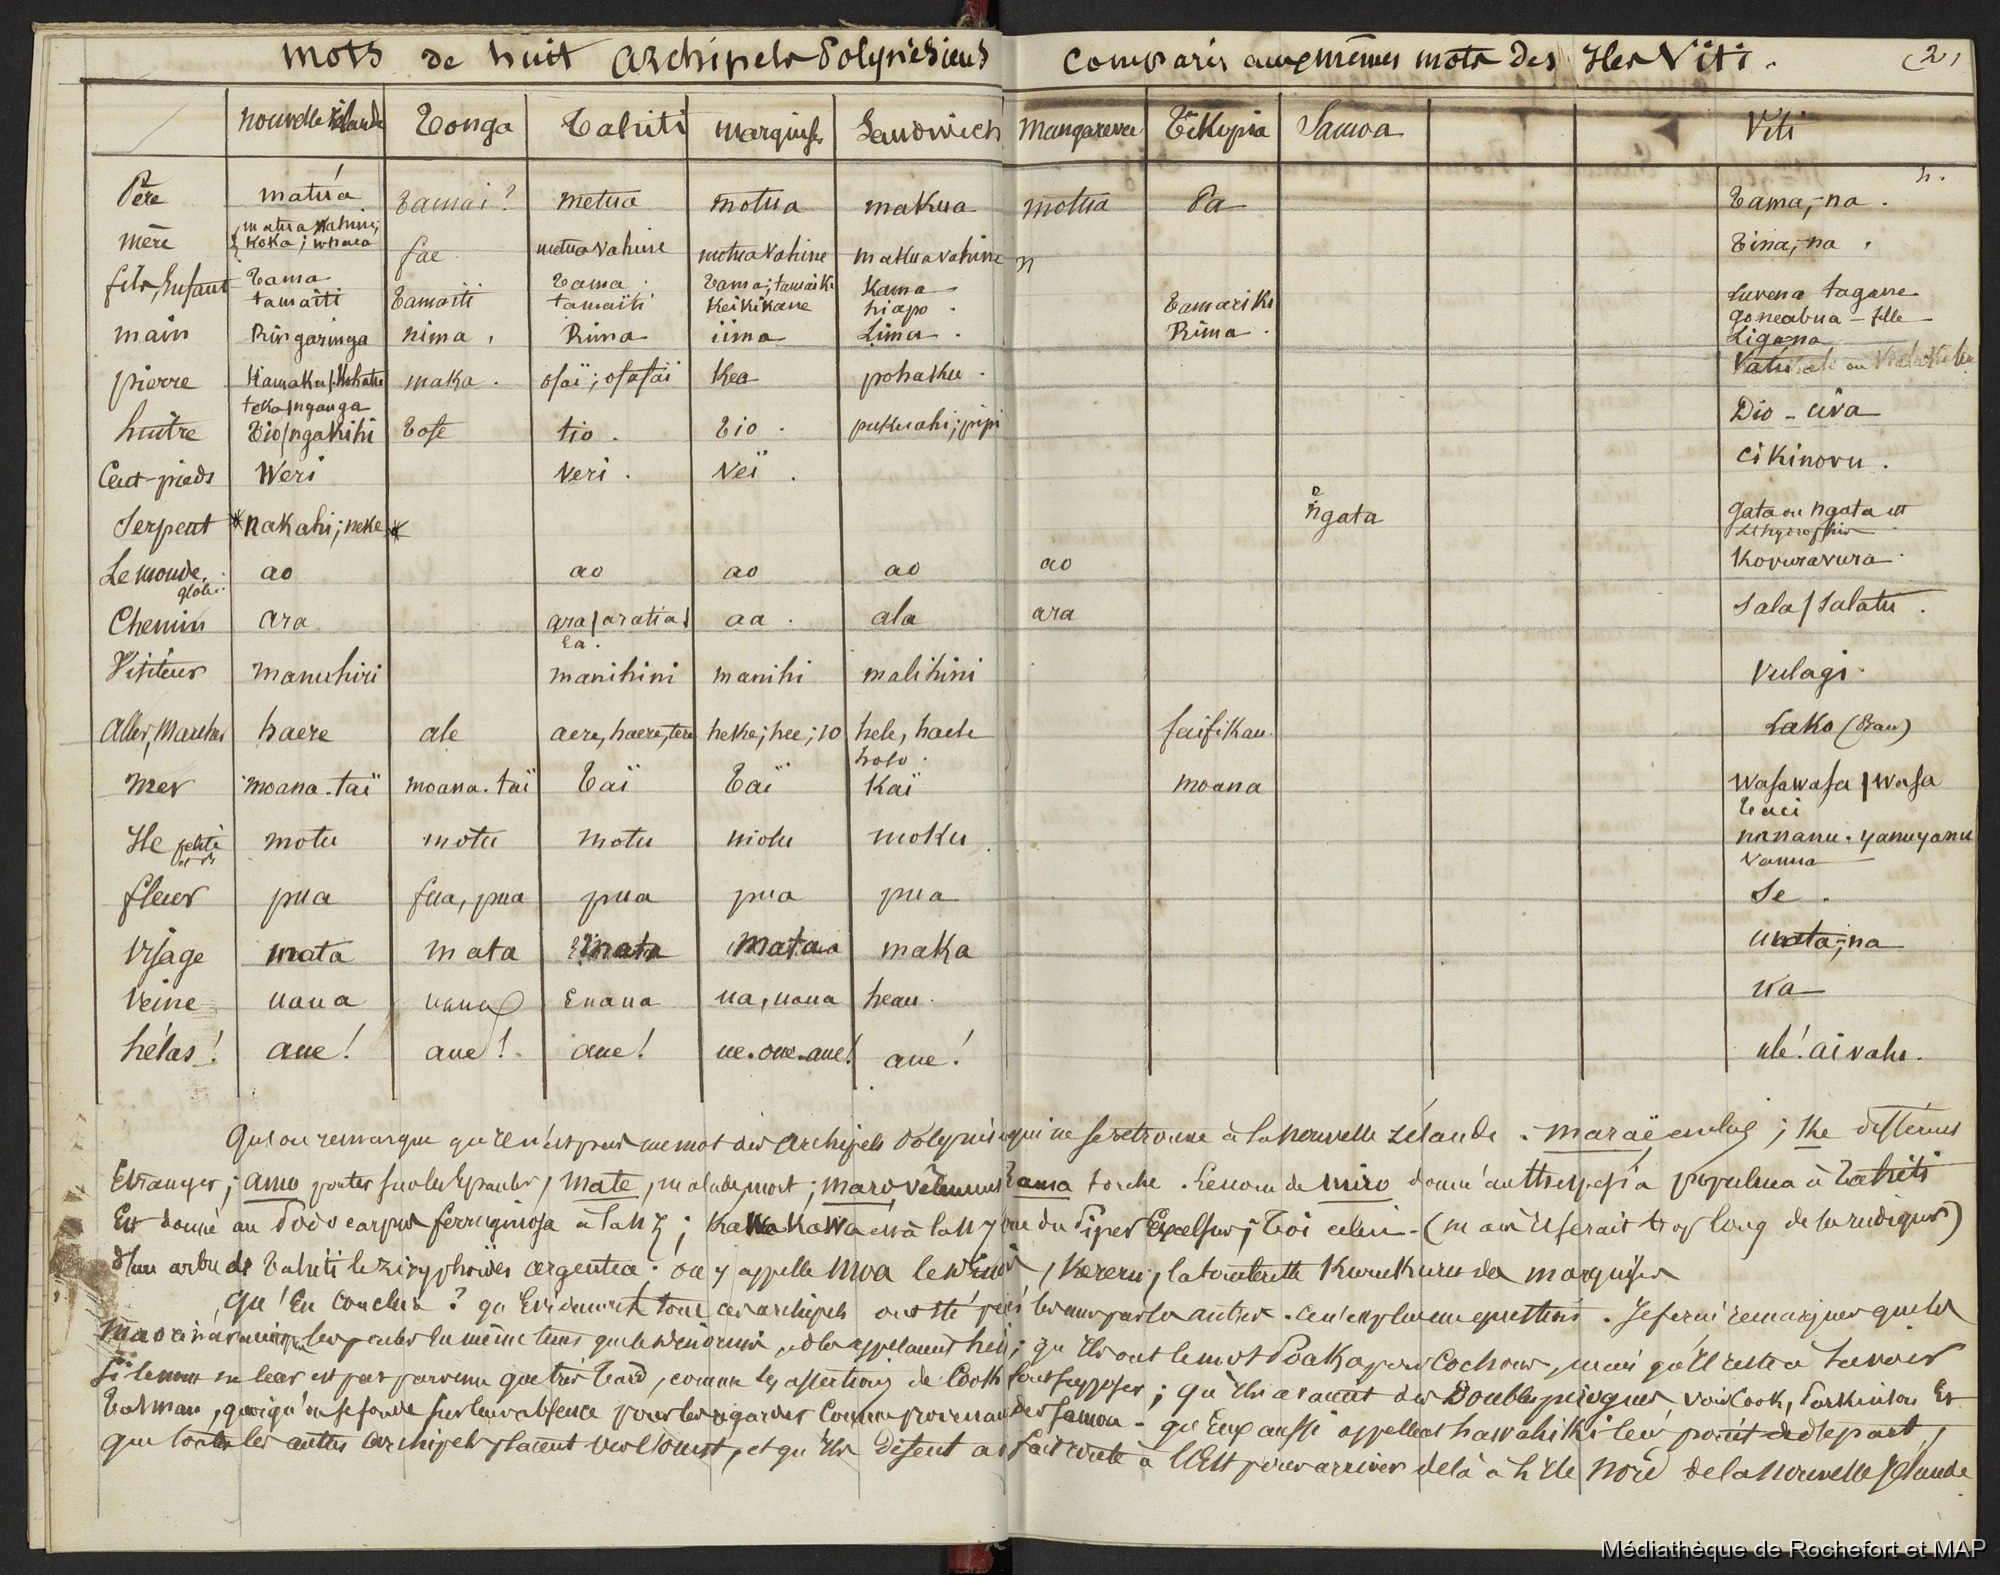 mots de huit Archipels Polynésiens comparés aux mêmes mots des Iles Viti. (2)
nouvelle Zélande Tonga Tahiti marquises Sandwich Mangareva Tikopia Samoa Viti
Père matúa Tamai? metua motua makua motua Pa Tama,-na.
mère matua wahine; koka; whaea fae metua vahine motua vahine makua vahine n Tina,-na.
fils, Enfant Tama tamaiti Tamaiti Tama. tamaïti Tama; tamaiki Keikikane Kama hiapo. Tamariki luvena tagane
goneabua — fille
main Ringaringa nima, Rima iima Lima. Rima. Liga-na
pierre Kamaku/Kohatu maka. ofaï; ofafaï Kea pohaku. Vatu
toka/nganga
huître Tio/ngakihi Tofe tio. Tio. pukuahi; pipi Dio - civa
Cent-pieds Weri Veri. Veï. cikinovu.
Serpent *nakahi; neke* ngata gata ou ngata et
Le monde, globe. ao ao ao ao ao Kovuravura.
Chemin ara ara/aratia/ aa. ala ara Sala/Salatu.
Ea.
Visiteur manuhiri manihini manihi malihini Vulagi.
Aller, Marcher haere ale aere, haere, tere heke; hee; io hele, haele faifikau. Lako (Brau)
holo.
mer moana.taï moana.taï Taï Taï Kaï moana wasawasa/wasa
Taci
Ile petite motu motu motu motu moku nananu. yanuyanu
Vanua
fleur pua fua, pua pua pua pua Se.
visage mata mata mata mataa maka mata,-na
Veine uaua uaua Euaua ua, uaua heau. ua
hélas! aue! aue!. aue! ue.oue.aue! aue! ule! aivahe.
Qu'on remarque qu'il n'est pas un mot des Archipels Polynésiens qui ne se retrouve à la nouvelle Zélande. maraë enclos; Ke différent
Etranger; amo porter sur les Epaules, mate, malade, mort; maro vêtement Rama torche. Le nom de miro donné au thespesia populnea à Tahiti
Est donné au Podocarpus ferruginosa à la N Z; Kawakawa est à la N Z du Piper Excelsum; Toi celui - (mais il serait trop long de le rédiger)
d'un arbre de Tahiti le zizyphoïdes argentea; on y appelle moa le , Kereru, la tourterelle Kurukuru des marquises
Qu'En conclure? qu'Evidemment tous ces archipels ont été peuplés les uns par les autres. Ce n'est plus une question. Je ferai remarquer que les
les poules en même tems que , et les appelaient hei; qu'ils ont le mot Poaka pour Cochons, mais qu'il reste à savoir
si le nom ne leur est pas parvenu que très tard, comme les assertions de Cook font supposer; qu'ils avaient des Doubles pirogues, voir Cook, Parkinson Et
Tasman, quoiqu'on se fonde sur leur absence pour les regarder comme provenant des Samoa - qu'Eux aussi appellent hawahiki leur point de départ,
que toutes les autres Archipels placent vers l'ouest, et qu'ils disent avoir fait route à l'Est pour arriver delà à l'Ile Nord de la Nouvelle Zélande
Médiathèque de Rochefort et MAP